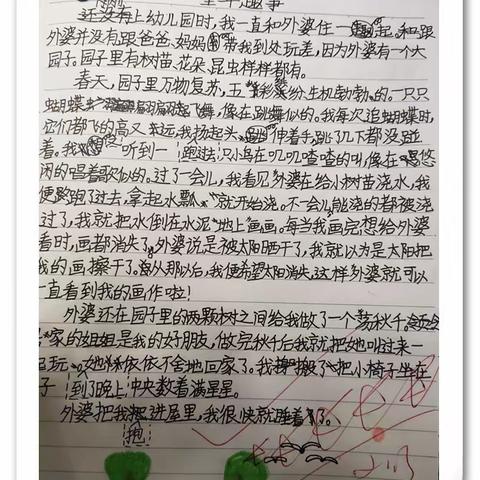 童年趣事
还没有上幼儿园时,我一直和外婆住一起。和跟
外婆并没有跟爸爸、妈妈带我到处玩差,因为外婆有一个大
园子。园子里有树苗、花朵、昆虫样样都有。
春天,园子里万物复苏,五彩缤纷、生机勃勃的。一只只
蝴蝶翩翩起飞舞,像在跳舞似的。我每次追蝴蝶时,
它们都飞的高又远,我扬起头,伸着手,跳了几下都没碰
着。我听到一跑过去只小鸟在叽叽喳喳的叫,像在悠
闲的唱着歌似的。过了一会儿,我看见外婆在给小树苗浇水,我
便跑了过去,拿起水瓢就开始浇。不一会儿能浇的都被浇
过了,我就把水倒在水泥地上画画。每当我画完想给外婆
看时,画都消失了。外婆说是被太阳晒干了,我就以为是太阳把
我的画擦干了。从那以后,我便希望太阳消失,这样外婆就可以
一直看到我的画作啦!
外婆还在园子里的两颗树之间给我做了一个荡秋千。
家的姐姐是我的好朋友,做完秋千后我就把她叫过来一
起玩。她依依不舍地回家了。我搬了一把小椅子坐在
子到了晚上中央数着满星星。
外婆把我抱进屋里,我很快就睡着了。